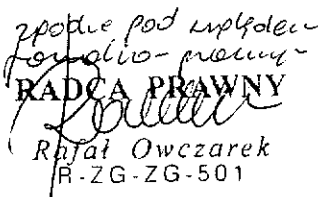 zgodne pod względem
formalno-prawnym
RADCA PRAWNY
Rafał Owczarek
R-ZG-ZG-501